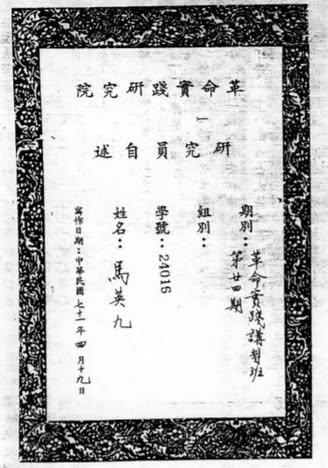 革命實踐研究院
研究員自述
期別：革命實踐講習班
第廿四期
組別：
學號：24015
姓名：馬英九
寫作日期：中華民國七十一年四月十九日